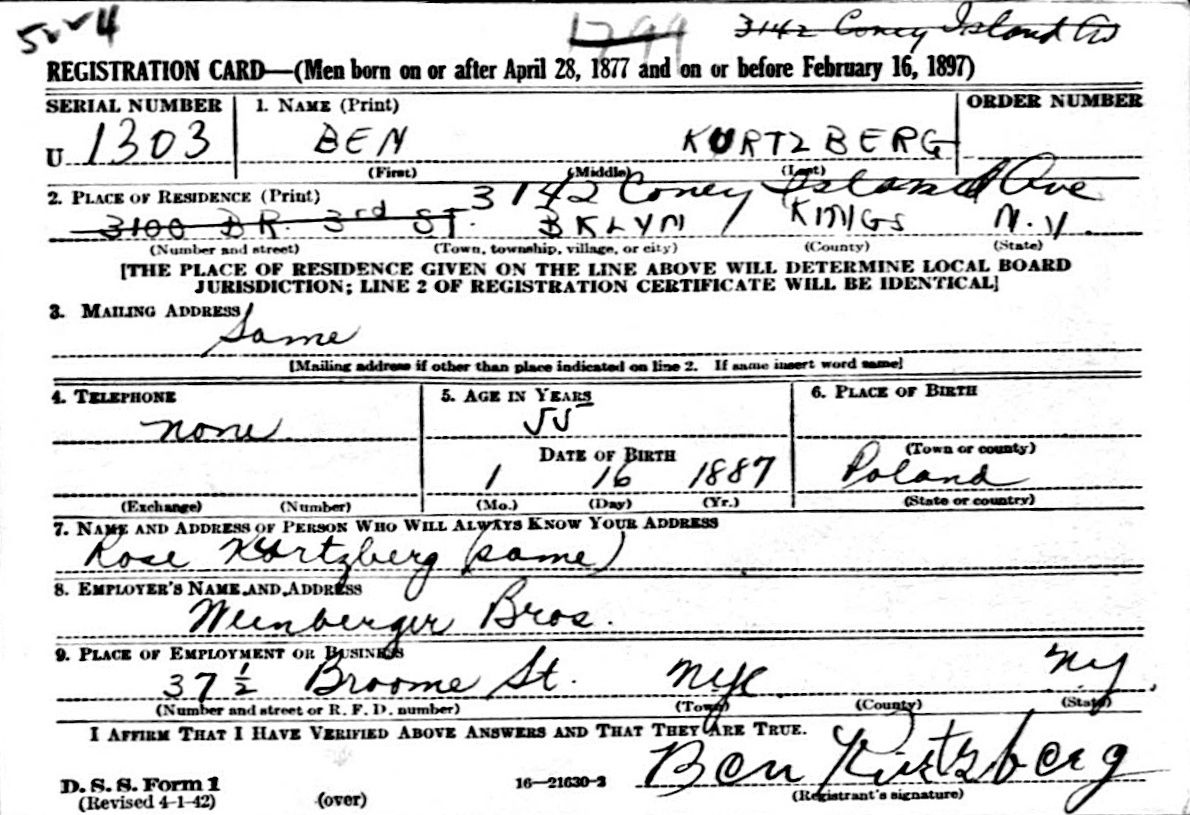 5224 1799 3142 Coney Island Av
REGISTRATION CARD—(Men born on or after April 28, 1877 and on or before February 16, 1897)
SERIAL NUMBER 1. NAME (Print) ORDER NUMBER
U 1303 BEN KURTZBERG
(First) (Middle) (Last)
2. PLACE OF RESIDENCE (Print) 3142 Coney Island Ave
3100 BR. 3rd ST. BKLYN KINGS N.Y.
(Number and street) (Town, township, village, or city) (County) (State)
[THE PLACE OF RESIDENCE GIVEN ON THE LINE ABOVE WILL DETERMINE LOCAL BOARD
JURISDICTION; LINE 2 OF REGISTRATION CERTIFICATE WILL BE IDENTICAL]
3. MAILING ADDRESS
Same
[Mailing address if other than place indicated on line 2. If same insert word same]
4. TELEPHONE 5. AGE IN YEARS 6. PLACE OF BIRTH
none 55
DATE OF BIRTH (Town or county)
1 16 1887 Poland
(Exchange) (Number) (Mo.) (Day) (Yr.) (State or country)
7. NAME AND ADDRESS OF PERSON WHO WILL ALWAYS KNOW YOUR ADDRESS
Rose Kurtzberg (same)
8. EMPLOYER'S NAME AND ADDRESS
Weinberger Bros.
9. PLACE OF EMPLOYMENT OR BUSINESS
37 1/2 Broome St. NYC NY
(Number and street or R. F. D. number) (Town) (County) (State)
I AFFIRM THAT I HAVE VERIFIED ABOVE ANSWERS AND THAT THEY ARE TRUE.
D. S. S. Form 1 16—21630-2 Ben Kurtzberg
(Revised 4-1-42) (over) (Registrant's signature)